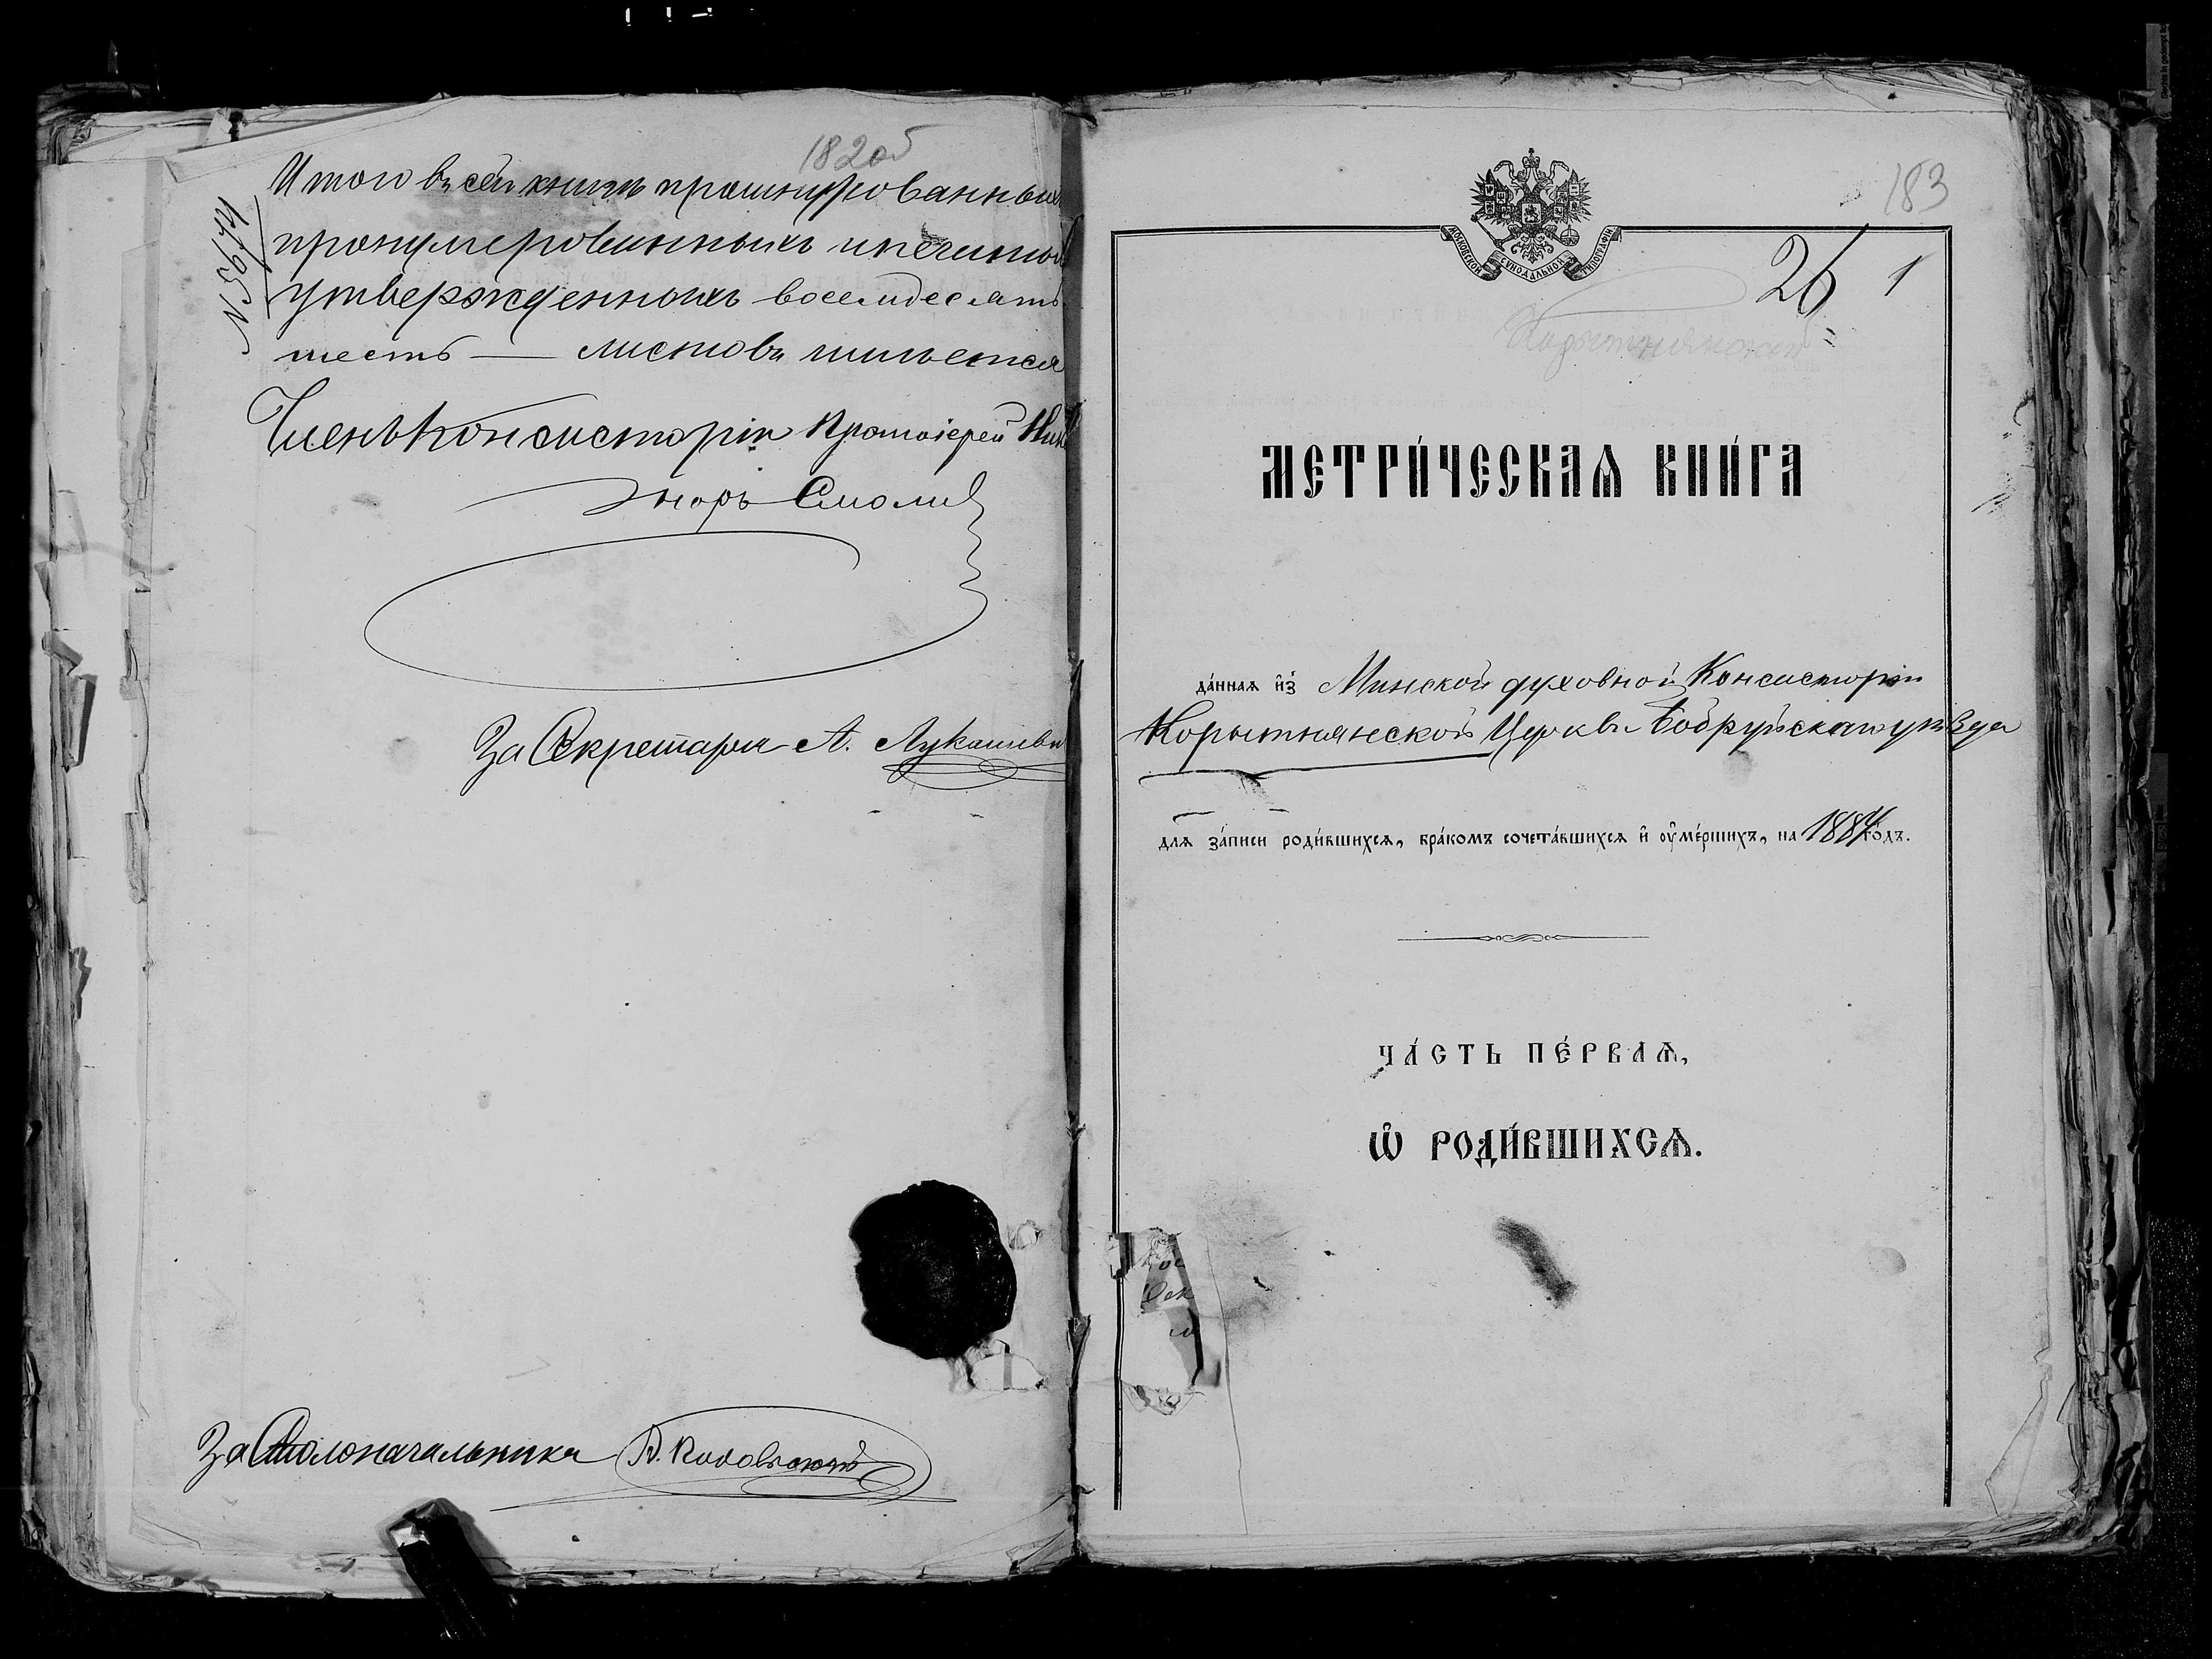 182об
Итого въ сей книгѣ прошнурованныхъ
пронумерованныхъ и печатью
утвержденныхъ восемдесятъ
шесть — листовъ имѣется
№ 5674
Членъ Консисторіи Протоіерей
Смолич
За Секретаря А. Лукашеви
За Столоначальника
183
МОСКОВСКОЙ СѴНОДАЛЬНОЙ ТИПОГРАФІИ
26 1
МЕТРИ́ЧЕСКАѦ КНИ́ГА
да́ннаѧ и҆з̾ Минской духовной Консисторіи
Корытнянской Церкви Бобруйскаго уѣзда
длѧ за́писи роди́вшихсѧ, бра́комъ сочета́вшихсѧ и҆ ᲂу҆ме́ршихъ, на 1884 годъ.
ЧА́СТЬ ПЕ́РВАѦ,
Ѡ҆ РОДИ́ВШИХСѦ.